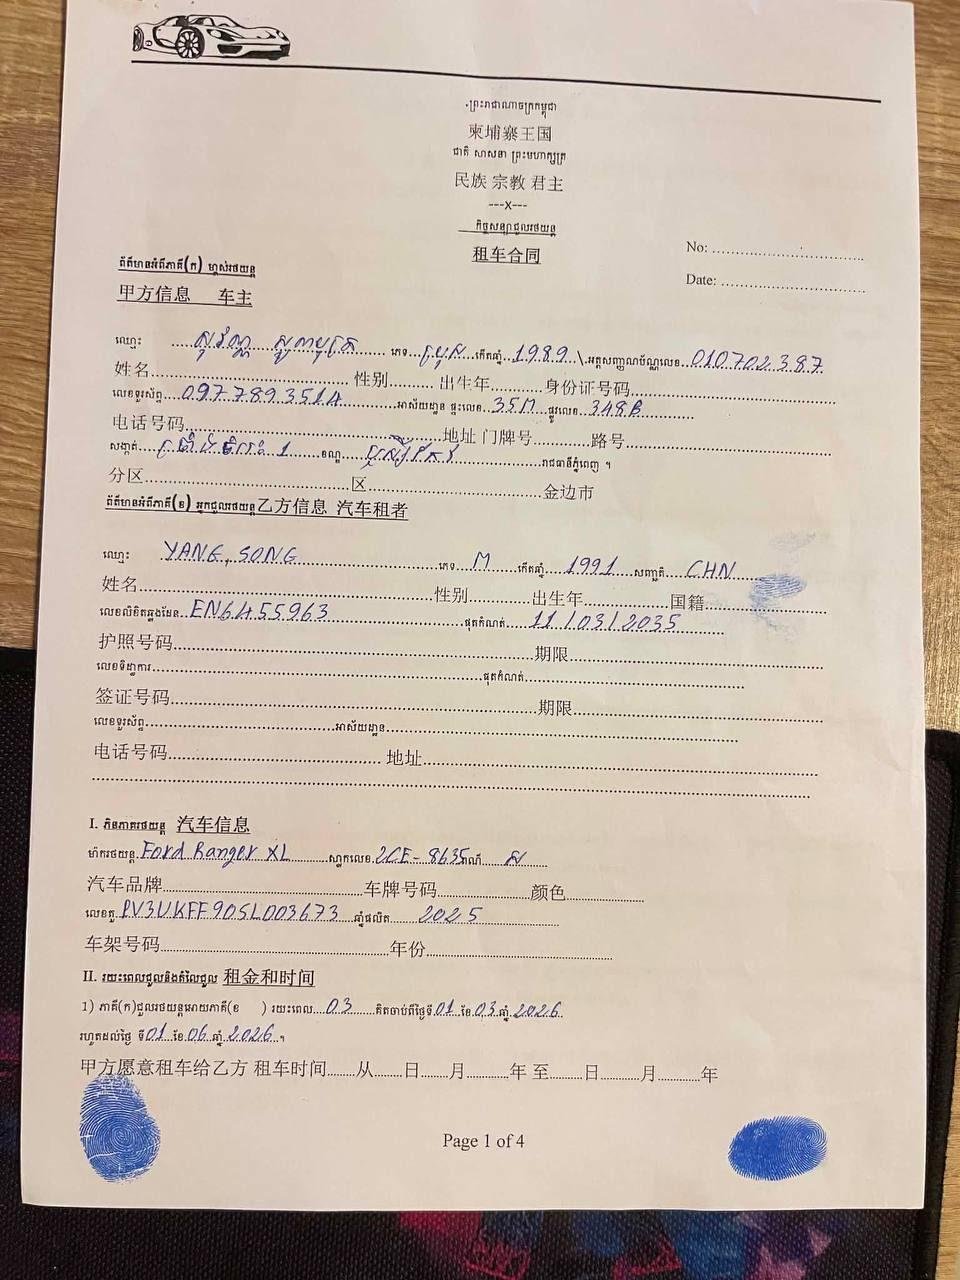 ព្រះរាជាណាចក្រកម្ពុជា
柬埔寨王国
ជាតិ សាសនា ព្រះមហាក្សត្រ
民族 宗教 君主
---X---
កិច្ចសន្យាជួលរថយន្ត
租车合同
No: ................................
Date: ................................
ព័ត៌មានអំពីភាគី(ក) ម្ចាស់រថយន្ត
甲方信息 车主
ឈ្មោះ ភេទ ប្រុស កើតឆ្នាំ 1989 អត្តសញ្ញាណប័ណ្ណលេខ 010702387
姓名 性别 出生年 身份证号码
លេខទូរស័ព្ទ 0977893514 អាស័យដ្ឋាន ផ្ទះលេខ 35M ផ្លូវលេខ 348B
电话号码 地址 门牌号 路号
សង្កាត់ 1 ខណ្ឌ រាជធានីភ្នំពេញ ។
分区 区 金边市
ព័ត៌មានអំពីភាគី(ខ) អ្នកជួលរថយន្ត乙方信息 汽车租者
ឈ្មោះ YANG, SONG ភេទ M កើតឆ្នាំ 1991 សញ្ជាតិ CHN
姓名 性别 出生年 国籍
លេខលិខិតឆ្លងដែន EN6455963 ផុតកំណត់ 11/03/2035
护照号码 期限
លេខទិដ្ឋាការ ផុតកំណត់
签证号码 期限
លេខទូរស័ព្ទ អាស័យដ្ឋាន
电话号码 地址
I. ភិនភាគរថយន្ត 汽车信息
ម៉ាករថយន្ត Ford Ranger XL ស្លាកលេខ 2CE-8635 ពណ៌ ស
汽车品牌 车牌号码 颜色
លេខតួ PV3UKFF90SL003673 ឆ្នាំផលិត 2025
车架号码 年份
II. រយះពេលជួលនិងតំលៃជួល 租金和时间
1) ភាគី(ក)ជួលរថយន្តអោយភាគី(ខ ) រយះពេល 03 គិតចាប់ពីថ្ងៃទី 01 ខែ 03 ឆ្នាំ 2026
រហូតដល់ថ្ងៃ ទី 01 ខែ 06 ឆ្នាំ 2026 ។
甲方愿意租车给乙方 租车时间........从......日......月..........年 至........日........月..........年
Page 1 of 4